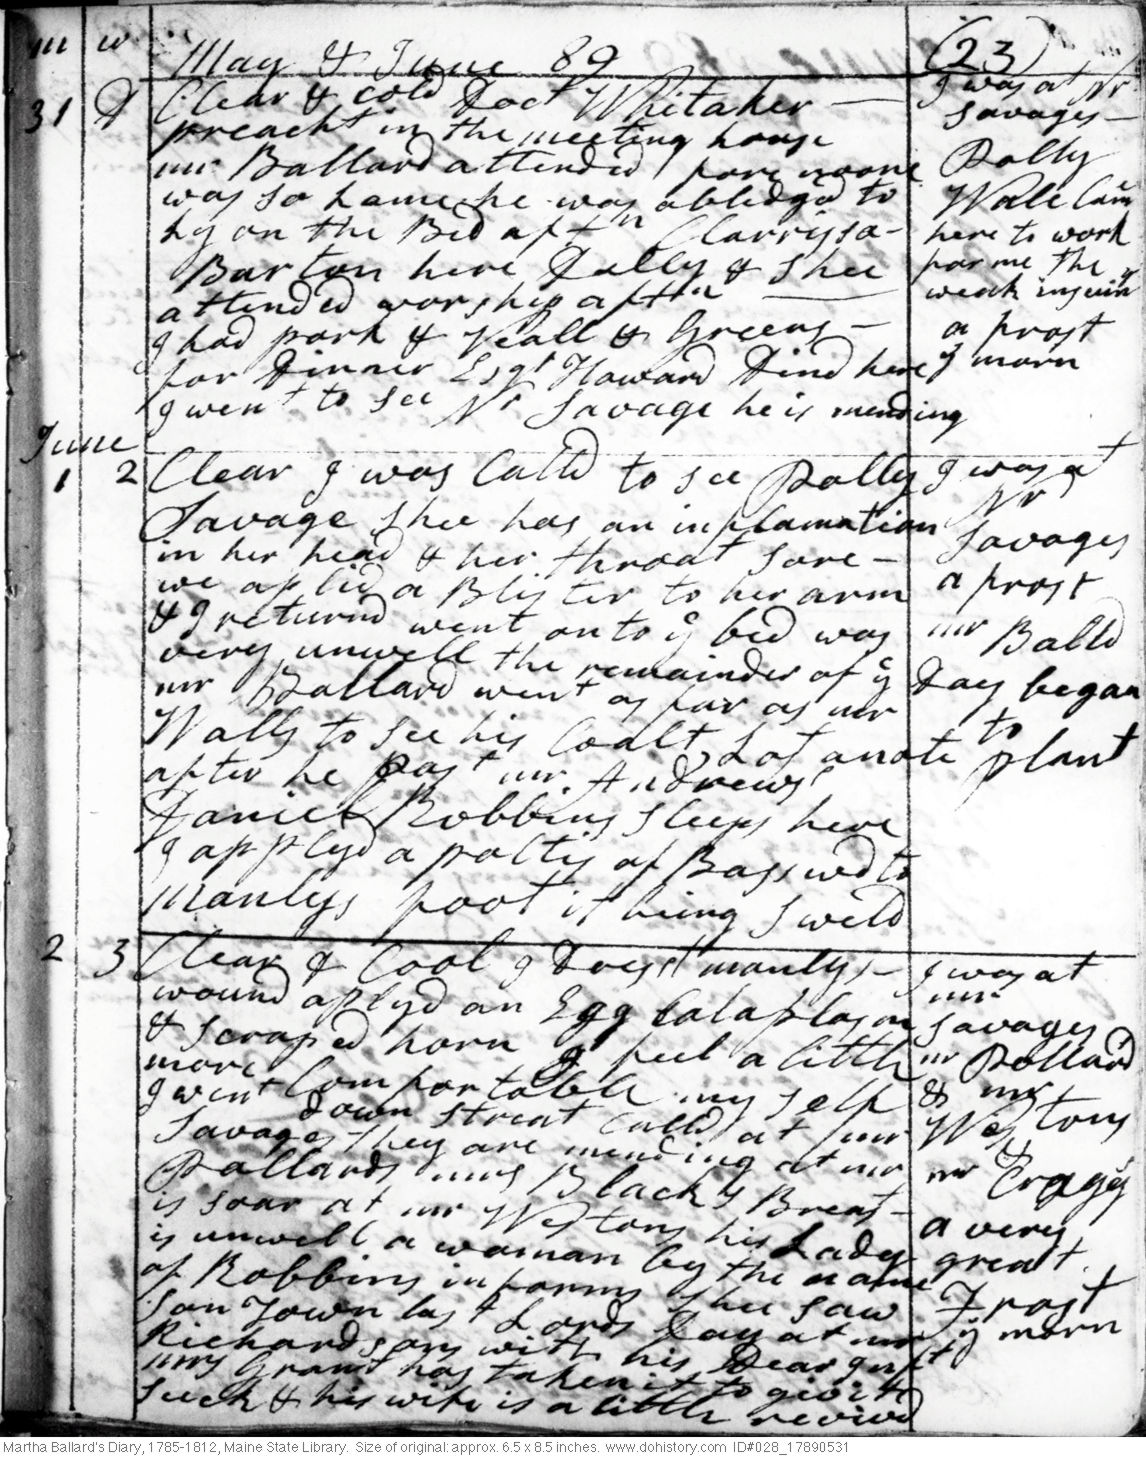 m w May & June 89 (23)
31 D Clear & cold Doct Whitaker —
preacht in the meeting house
mr Ballard attended fore noone
was so Lame he was obledgd to
ly on the Bed aftn Clarrissa
Barton here Dolly & Shee
attended worship aftn
I had pork & Veall & Greens —
for Dinner Esqr Howard Dind here
I went to see Mr Savage he is mending
I was at Mr
Savages —
Polly
Wale Cam
here to work
for me the
weak insuin
a frost
y morn
June
1 2 Clear I was Calld to see Polly
Savage Shee has an inflamation
in her head & her throat Sore —
we aplid a Blister to her arm
& I returnd went onto ye bed was
very unwell the remainder of ye Day
mr Ballard went as far as mr
Walls to see his Coalt, Lost a note
after he past mr Andrews
Daniel Robbins Sleeps here
I applyd a poltis of Basswd to
Manlys foot it being Sweld
I was at
Mr
Savages
a frost
mr Balld
began
to
plant
2 3 Clear & Cool I Dresst manlys
wound aplyd an Egg Cataplasm
& scraped horn I feel a little
more Comfortable my self
I went down street Calld at mr
Savages they are mending at mr
Pollards mrs Blacks Breast
is soar at mr Westons his Lady
is unwell a woman by the name
of Robbins informs Shee saw
Son Town last Lords Day at mr
Richardsons with his Dear
mrs Grant has taken it to give it
suck & his wife is a little revivd
I was at
mr
Savages
mr Pollard
& mr
Westons
&
mr Craggs
a very
great
Frost
y morn
Martha Ballard's Diary, 1785-1812, Maine State Library. Size of original: approx. 6.5 x 8.5 inches. www.dohistory.com ID#028_17890531